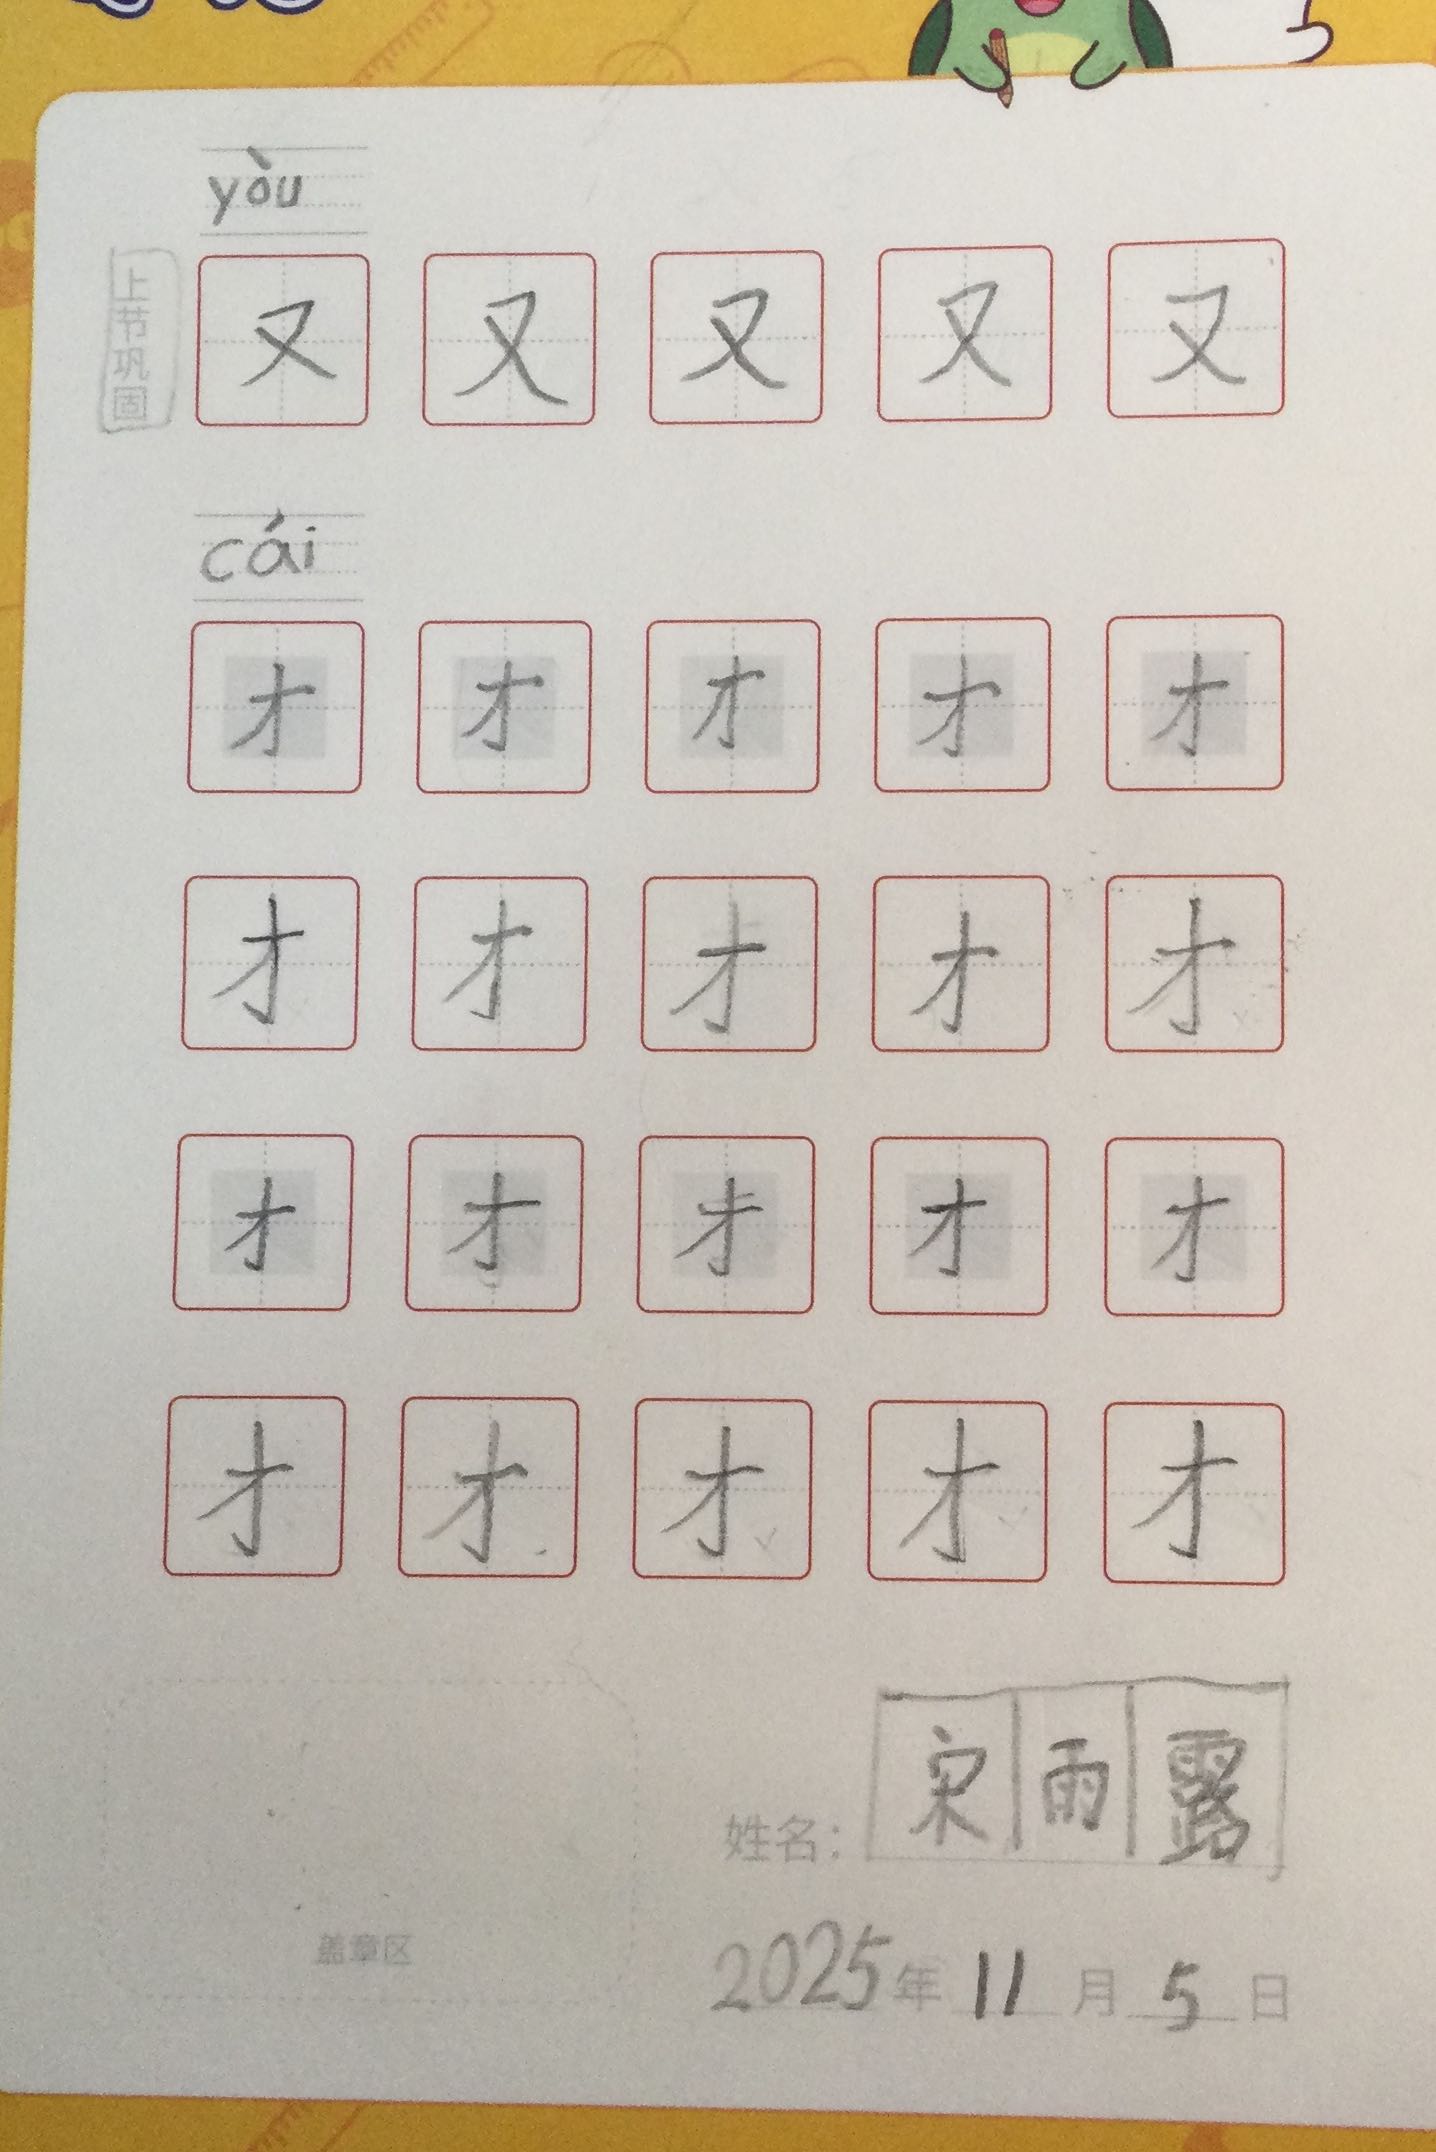 yòu
上节巩固
又 又 又 又 又
cái
才 才 才 才 才
才 才 才 才 才
才 才 才 才 才
才 才 才 才 才
姓名：宋雨露
盖章区
2025年 11 月 5 日